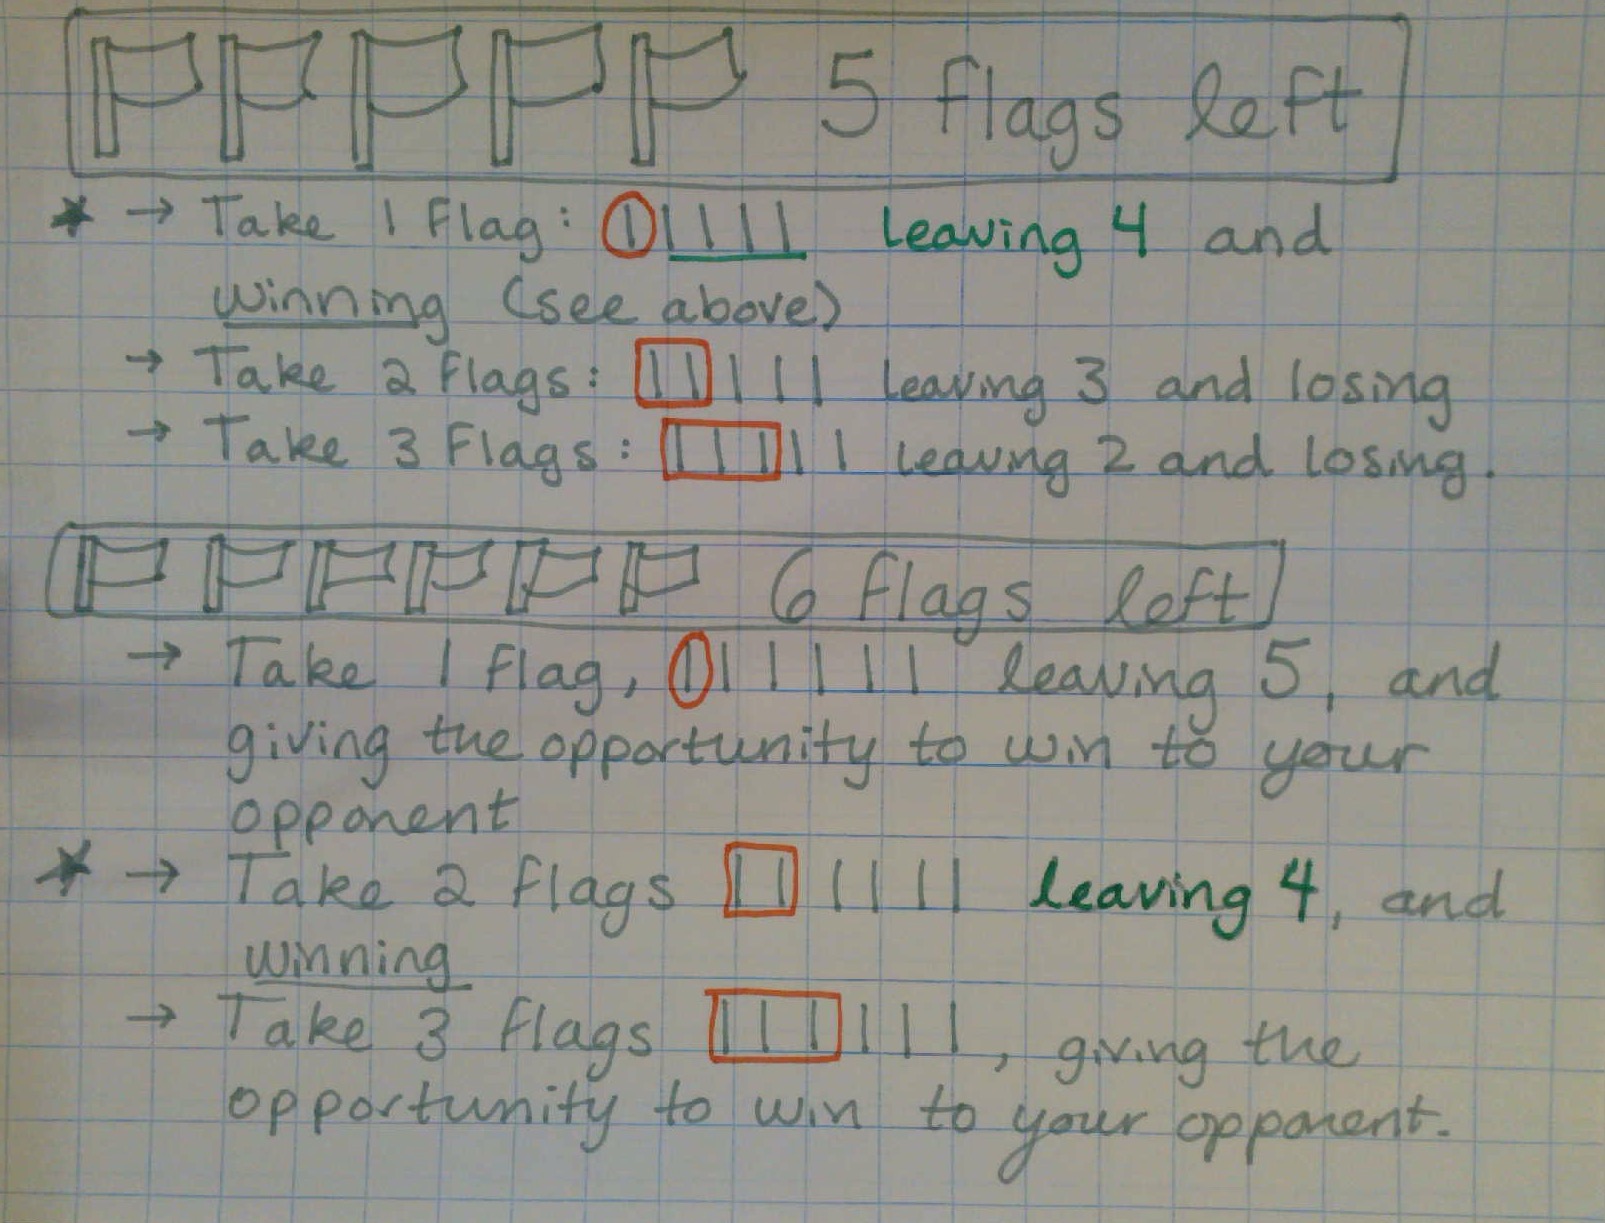 5 flags left
★ → Take 1 Flag: | | | | | leaving 4 and
winning (see above)
→ Take 2 Flags: | | | | | leaving 3 and losing
→ Take 3 Flags: | | | | | leaving 2 and losing.
6 flags left
→ Take 1 flag, | | | | | | leaving 5, and
giving the opportunity to win to your
opponent
★ → Take 2 flags | | | | | | leaving 4, and
winning
→ Take 3 flags | | | | | |, giving the
opportunity to win to your opponent.